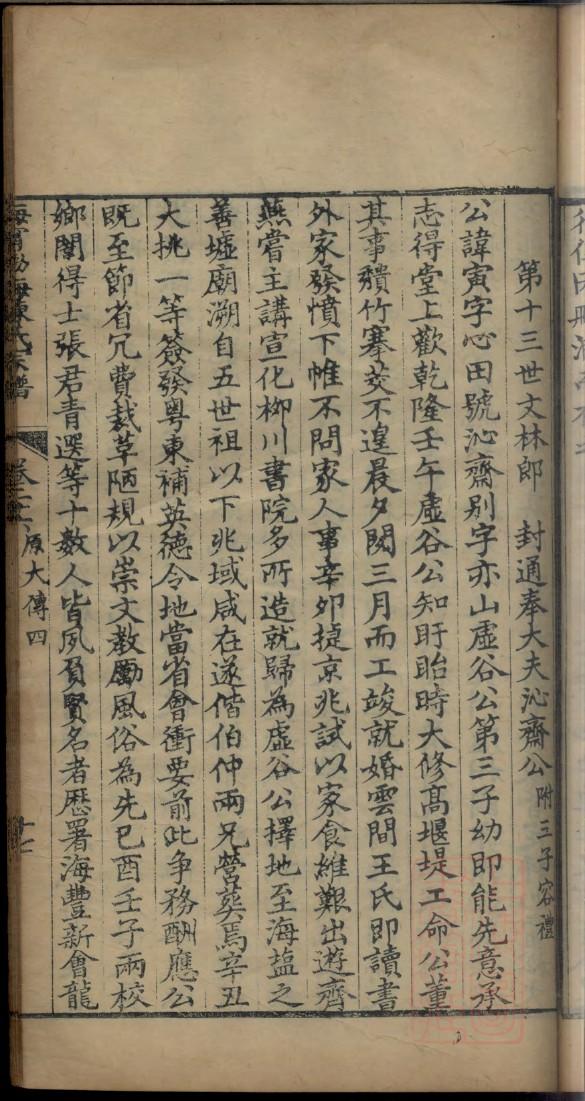 第十三世文林郎　封通奉大夫沁齋公附三子容禮
公諱寅字心田號沁齋别字亦山虛谷公第三子幼即能先意承
志得堂上歡乾隆壬午虛谷公知盱眙時大修髙堰堤工命公董
其事積竹搴茭不遑晨夕閱三月而工竣就婚雲間王氏即讀書
外家發憤下帷不問家人事辛卯捷京兆試以家食維艱出遊齊
燕嘗主講宣化柳川書院多所造就歸為虛谷公擇地至海塩之
善墟廟溯自五世祖以下兆域咸在遂偕伯仲兩兄營葬焉辛丑
大挑一等簽發粤東補英德令地當省會衝要前此争務酬應公
既至節省冗費裁草陋規以崇文教勵風俗為先己酉壬子兩校
鄉闈得士張君青選等十數人皆夙負賢名者歷署海豐新會龍
海寧渤海陳氏宗譜
卷二 原大傳四
十七